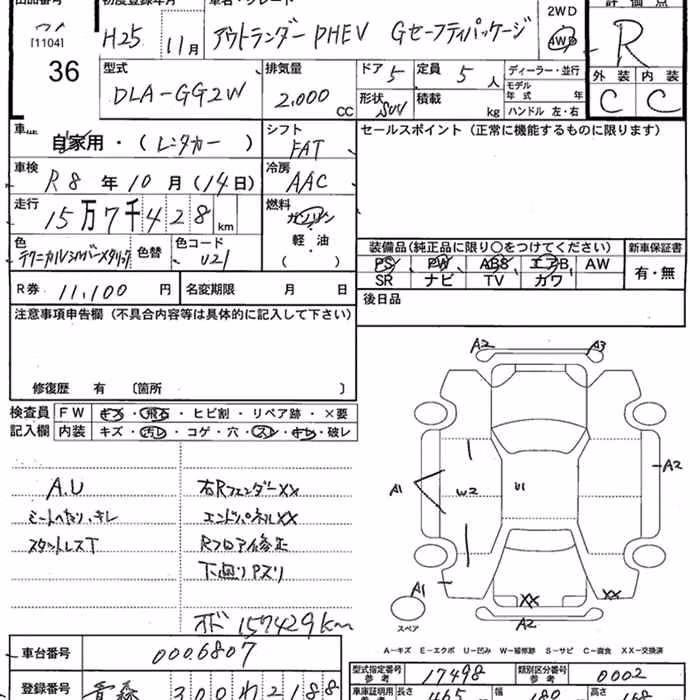 出品番号 初度登録年月 車名・グレード 評価点
[1104] H25 11月 アウトランダーPHEV Gセーフティパッケージ 2WD 4WD R
36
型式 DLA-GG2W 排気量 2.000 CC ドア 5 定員 5 人 ディーラー・並行
形状 SUV 積載 kg モデル年式 年 外装 内装
ハンドル 左・右 C C
車歴 自家用・(レンタカー) シフト FAT セールスポイント(正常に機能するものに限ります)
車検 R8年10月(14日) 冷房 AAC
走行 15万7千428km 燃料 ガソリン
軽・油
( )
色 テクニカルシルバーメタリック 色替 色コード U21
装備品(純正品に限り○をつけてください) 新車保証書
PS PW ABS エアB AW 有・無
SR ナビ TV カワ
R券 11,100円 名変期限 月 日 後日品
注意事項申告欄(不具合内容等は具体的に記入して下さい)
修復歴 有 〔箇所 〕
検査員 FW キズ・飛石・ヒビ割・リペア跡・×要
記入欄 内装 キズ・汚レ・コゲ・穴・スレ・キレ・破レ
A.U 右Rフェンダー××
シートへたり.キレ エンドパネル××
スタットレスT Rフロア修正
下廻りアスリ
オド 157429km
A2 A3
A1 W2 U1 A2
A1 XX XX
A2
スペア
A-キズ E-エクボ U-凹み W-補修跡 S-サビ C-腐食 XX-交換済
車台番号 0006807
型式指定番号 参考 17498 類別区分番号 参考 0002
登録番号 青森 300 わ 2188
車庫証明用 参考 長さ 465 幅 180 高さ 168